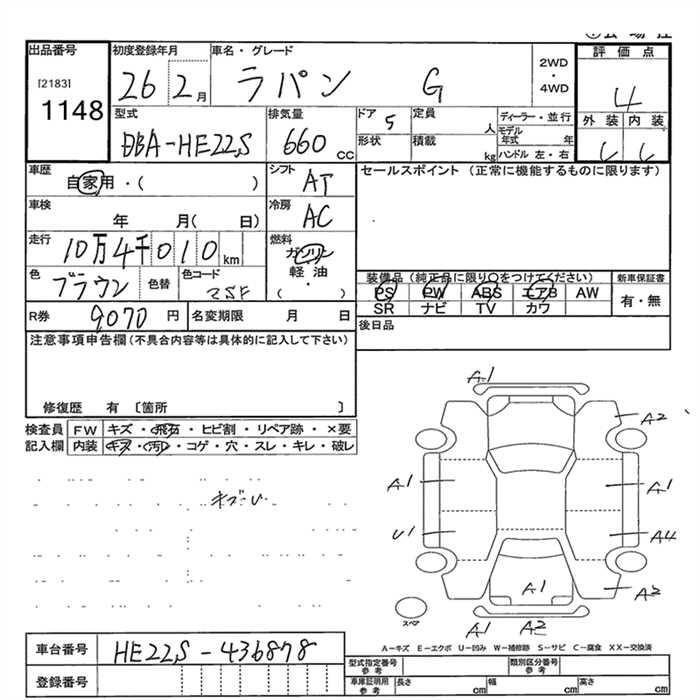 出品番号
[2183]
1148
初度登録年月
26 2月
車名・グレード
ラパン G
2WD
・
4WD
評価点
4
外装 内装
型式
DBA-HE22S
排気量
660 cc
ドア 5
定員 人
形状
積載 kg
ディーラー・並行
モデル年式 年
ハンドル 左・右
車歴
自家用・( )
シフト
AT
セールスポイント (正常に機能するものに限ります)
車検
年 月( 日)
冷房
AC
走行
10万4千010km
燃料
ガソリン
軽油
・
( )
色
ブラウン
色替
色コード
装備品 (純正品に限り○をつけてください)
PS PW ABS エアB AW
SR ナビ TV カワ
新車保証書
有・無
R券 9070 円
名変期限 月 日
後日品
注意事項申告欄(不具合内容等は具体的に記入して下さい)
修復歴 有 〔箇所 〕
検査員 FW キズ・飛石・ヒビ割・リペア跡・×要
記入欄 内装 キズ・汚れ・コゲ・穴・スレ・キレ・破レ
A1
A2
A1
A1
U1
A4
A1
A2
スペア
A1 A2
A-キズ E-エクボ U-凹み W-補修跡 S-サビ C-腐食 XX-交換済
車台番号 HE22S-436878
登録番号
型式指定番号 参考
類別区分番号 参考
車庫証明用 参考
長さ cm
幅 cm
高さ cm